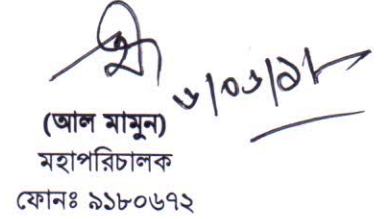 (আল মামুন)
মহাপরিচালক
ফোনঃ ৯১৮০৬৭২